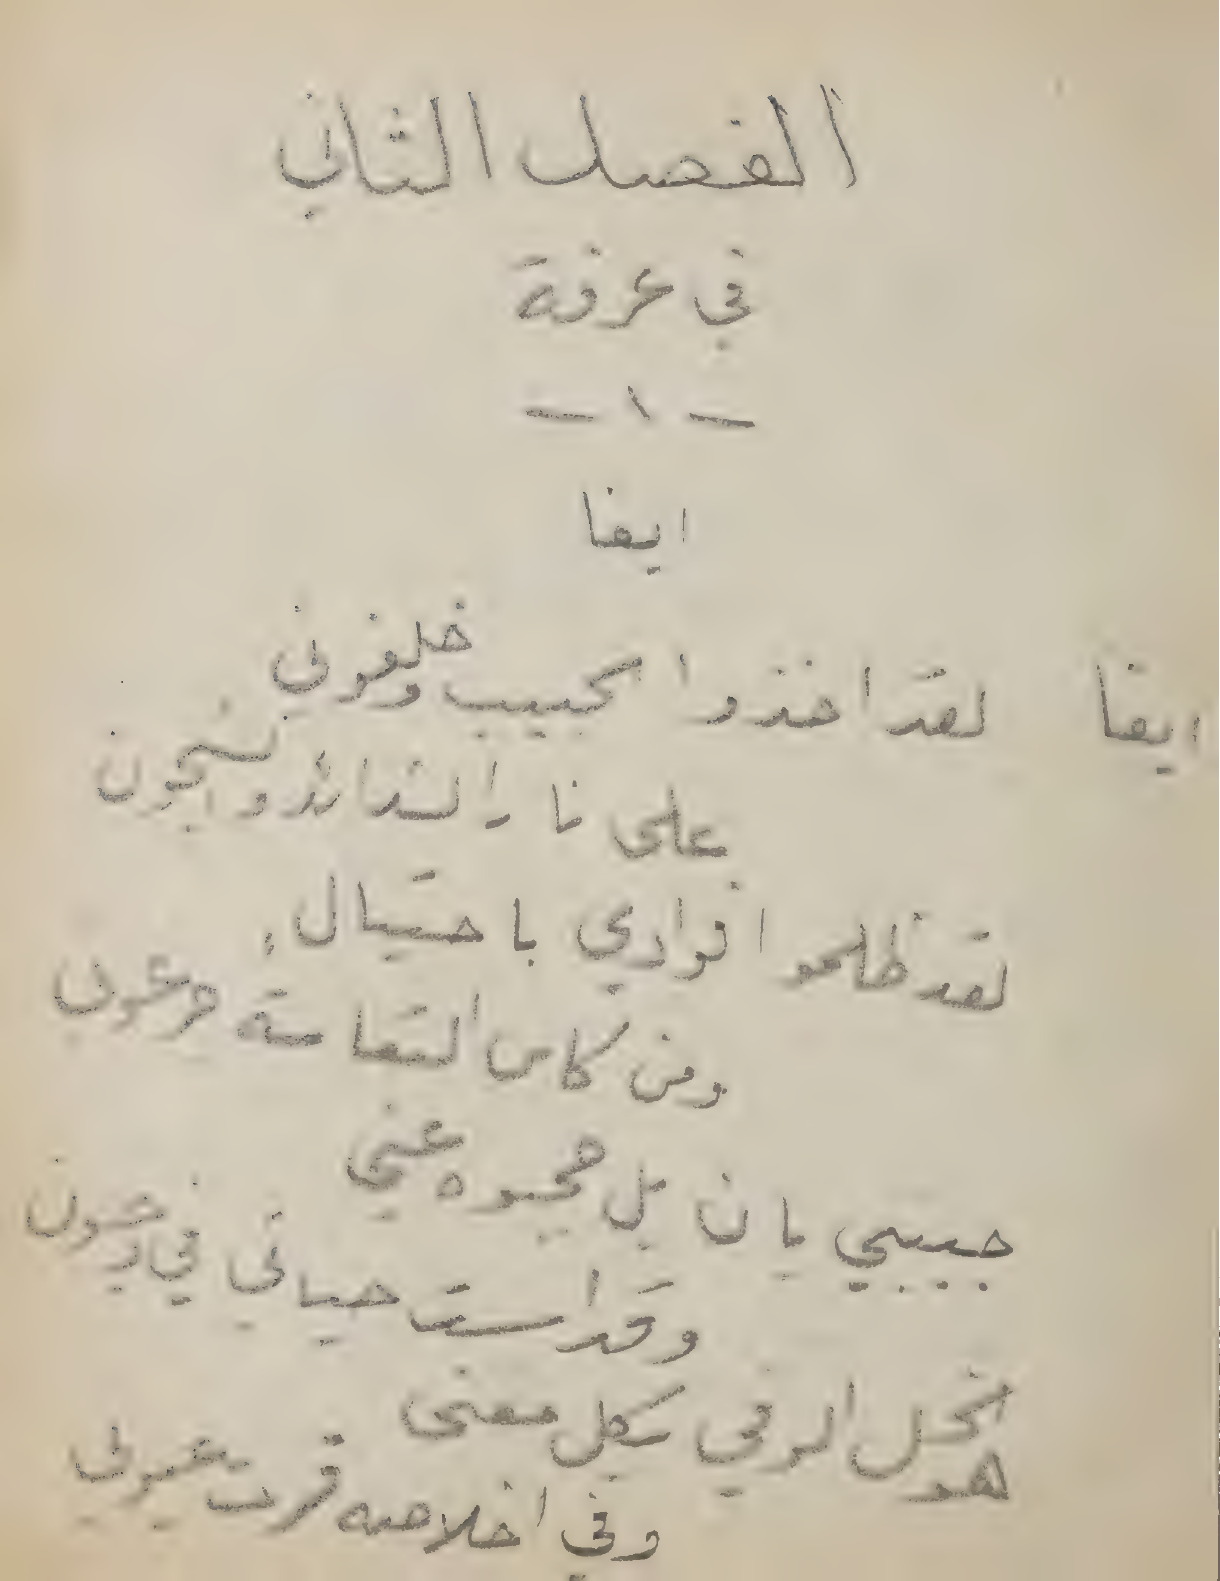 الفصل الثاني
في غرفة
— ١ —
ايفا
ايفا لقد اخذوا الحبيب وخلفوني
على نار الشدائد والشجون
لقد ظلموا افوادي باحتيال
ومن كاس التعاسة جرعوني
حبيبي بان بل حجبوه عني
وقد است حياتي في
هو الخل الوفي بكل معنى
وفي اخلاصه قرت عيوني